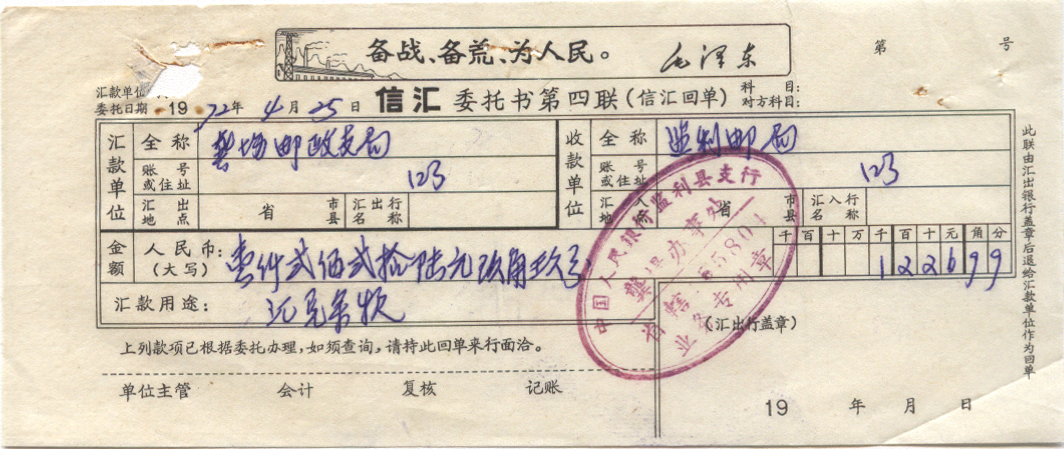 备战、备荒、为人民。 毛泽东
第 号
汇款单位
委托日期 1972年4月25日 信汇 委托书第四联(信汇回单) 科目:
对方科目:
汇款单位 全称 龚场邮政支局 收款单位 全称 监利邮局
账号或住址 123 账号或住址 123
汇出地点 省 市县 汇出行名称 汇入地 省 市县 汇入行名称
金额 人民币:(大写) 壹仟贰佰贰拾陆元玖角玖分 千百十万千百十元角分
122699
汇款用途: 汇兑余款
(汇出行盖章)
上列款项已根据委托办理,如须查询,请持此回单来行面洽。
单位主管 会计 复核 记账
19 年 月 日
此联由汇出银行盖章后退给汇款单位作为回单
中国人民银行监利县支行
办事处
省辖 5580
业务专用章